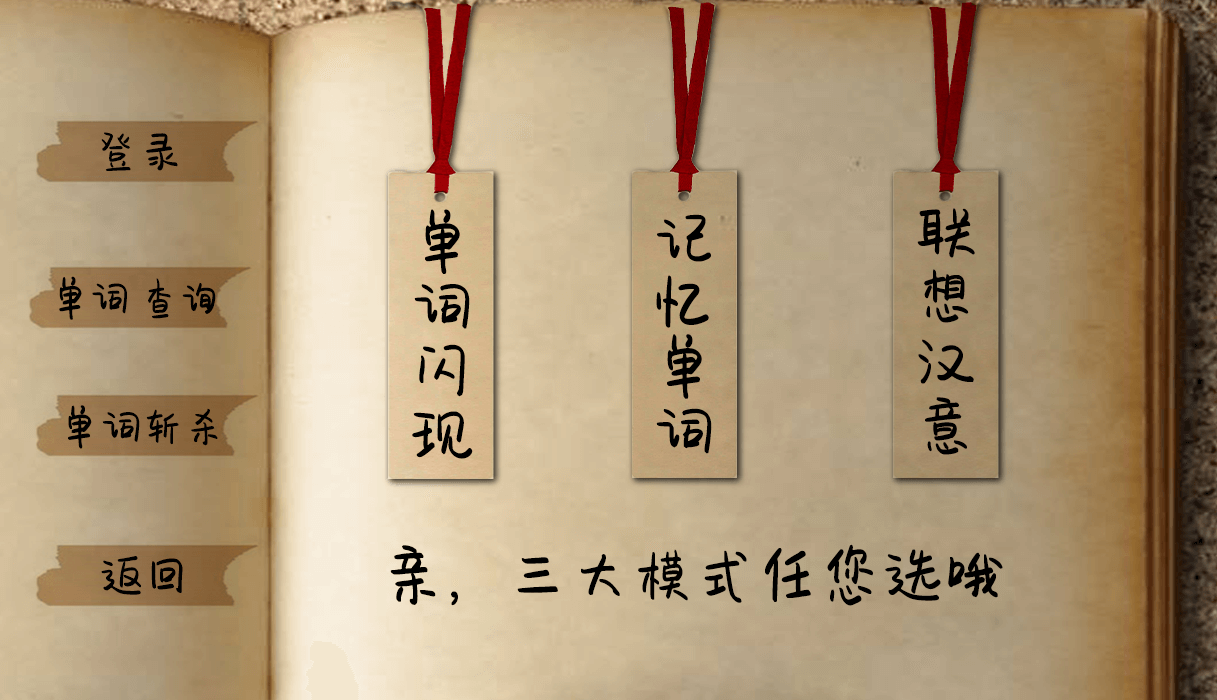 登录
单词查询
单词斩杀
返回
单词闪现
记忆单词
联想汉意
亲，三大模式任您选哦